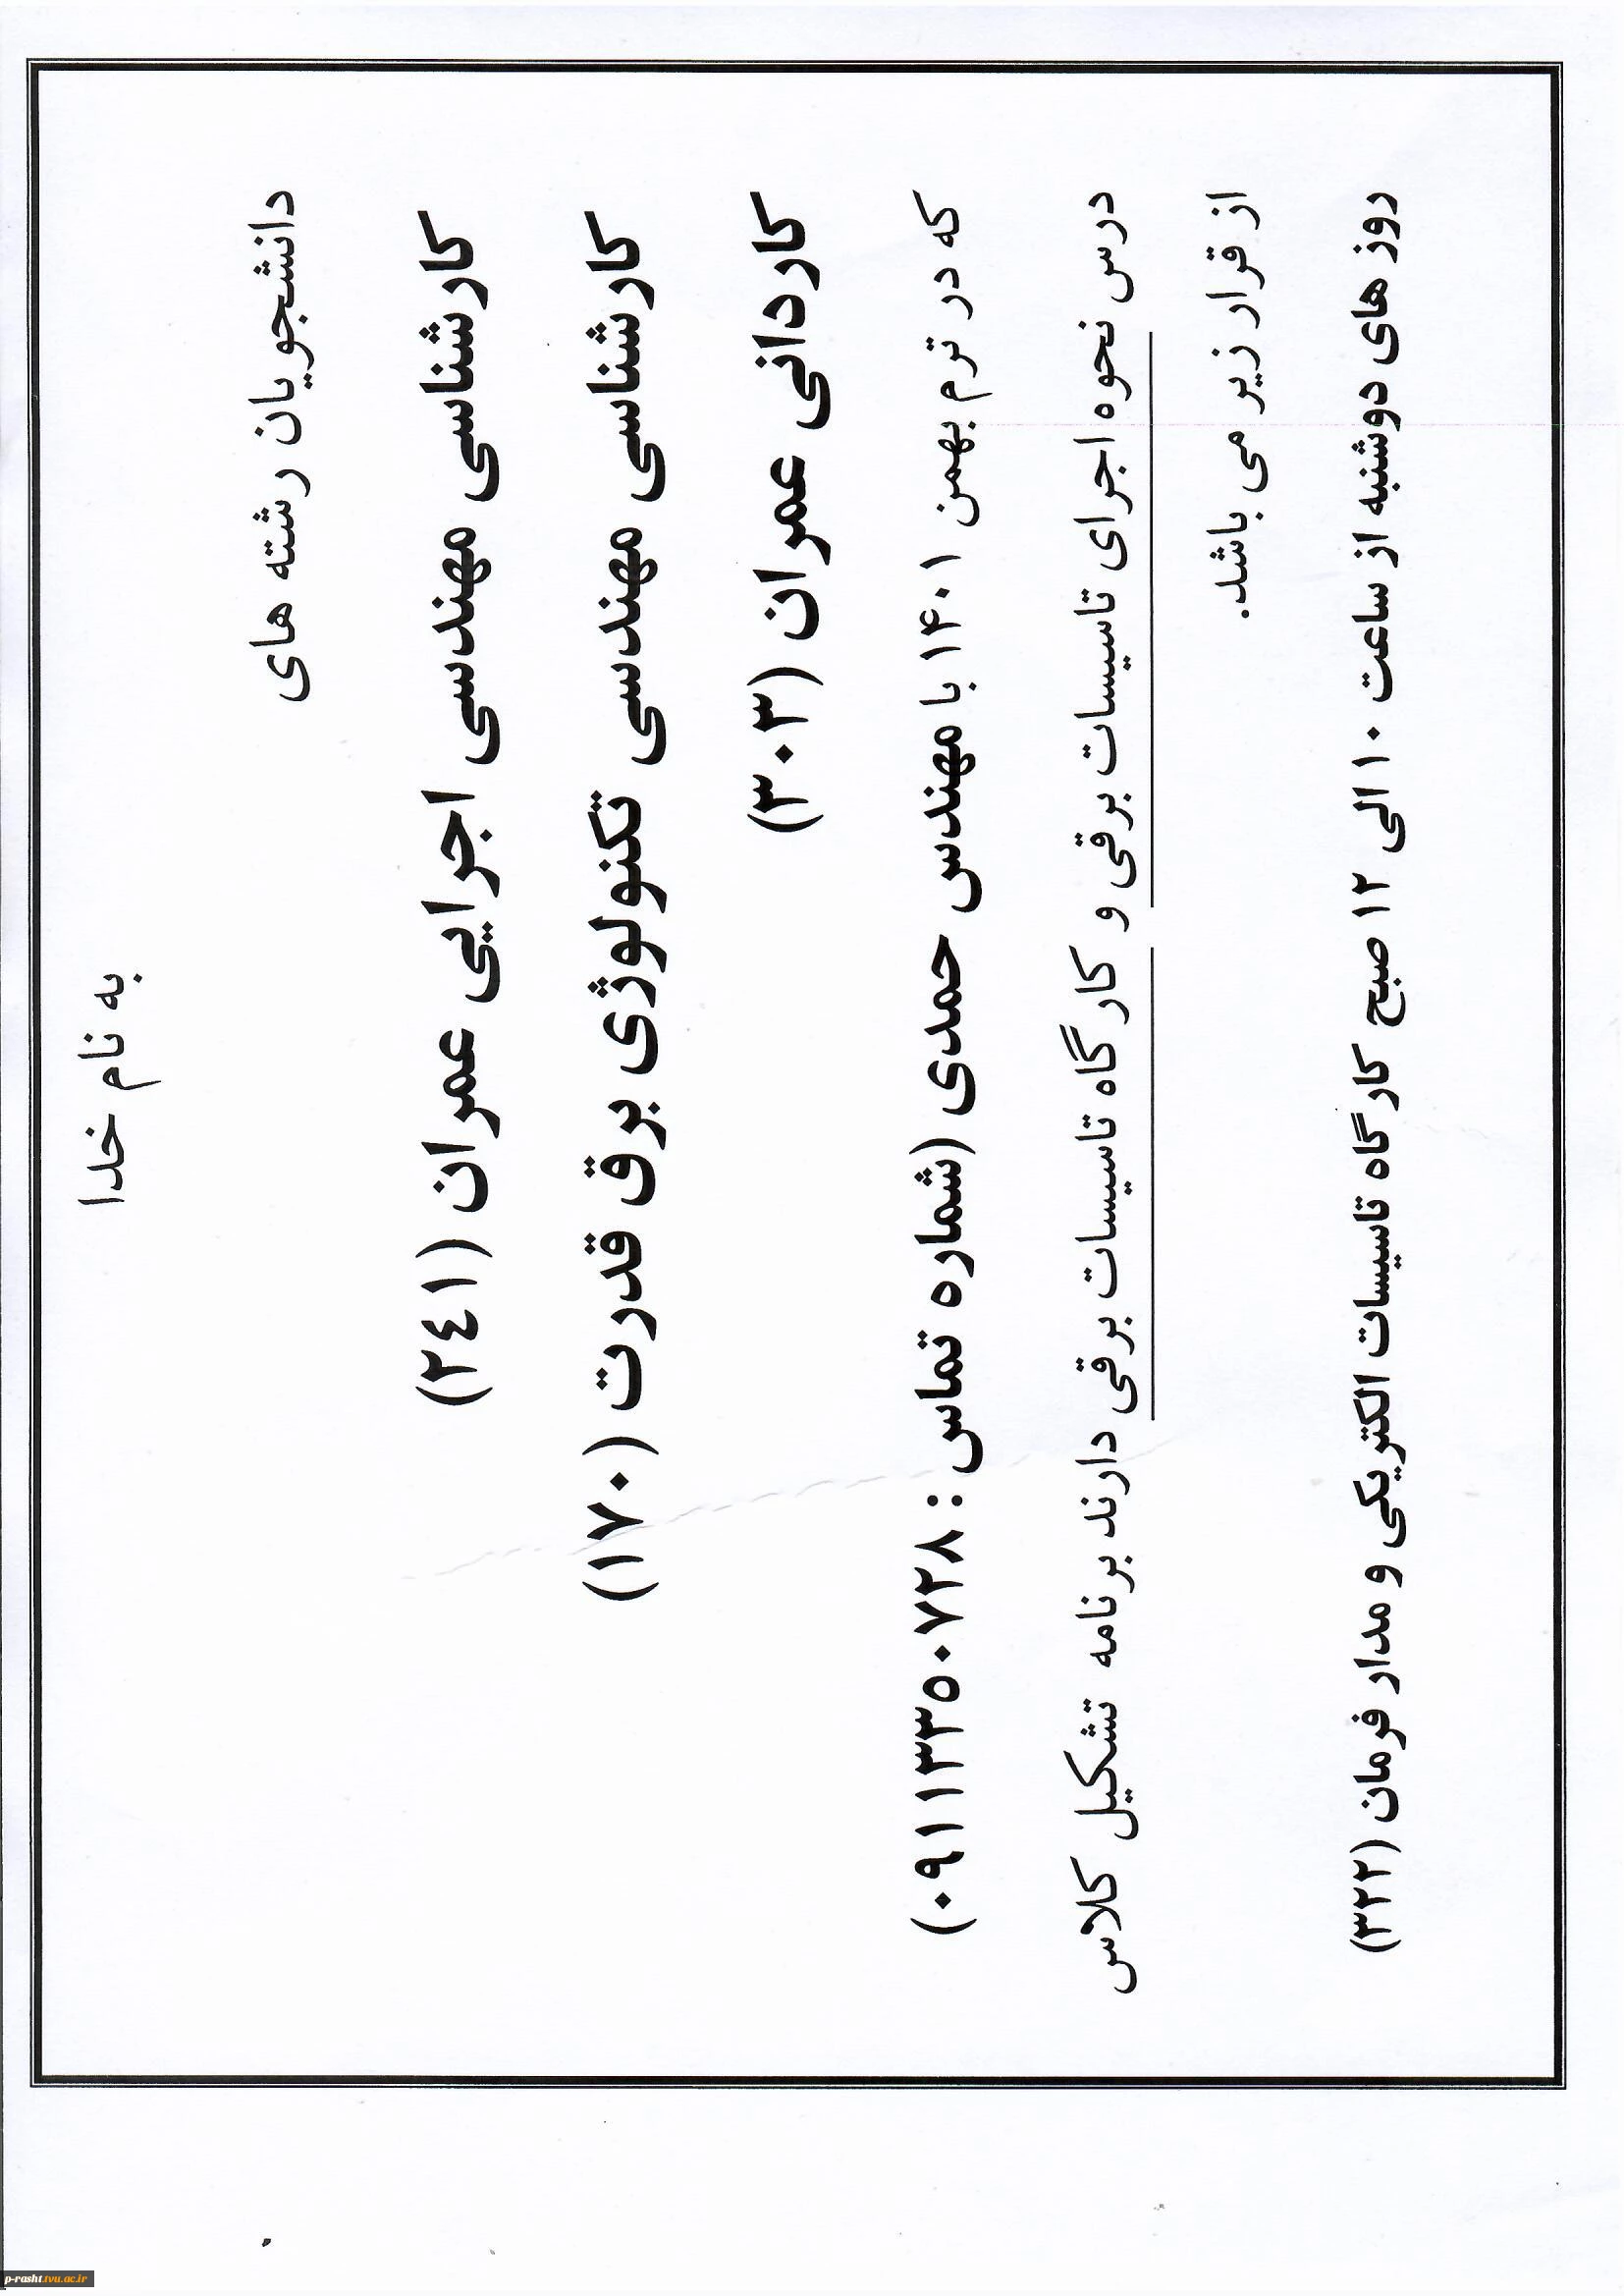 به نام خدا
دانشجویان رشته های
کارشناسی مهندسی اجرایی عمران (۲۴۱)
کارشناسی مهندسی تکنولوژی برق قدرت (۱۷۰)
کاردانی عمران (۳۰۳)
که در ترم بهمن ۱۴۰۱ با مهندس حمدی (شماره تماس : ۰۹۱۱۳۳۵۰۷۲۸)
درس نحوه اجرای تاسیسات برقی و کارگاه تاسیسات برقی دارند برنامه تشکیل کلاس
از قرار زیر می باشد.
روز های دوشنبه از ساعت ۱۰ الی ۱۲ صبح کارگاه تاسیسات الکتریکی و مدار فرمان (۳۲۲)
p-rasht.tvu.ac.ir